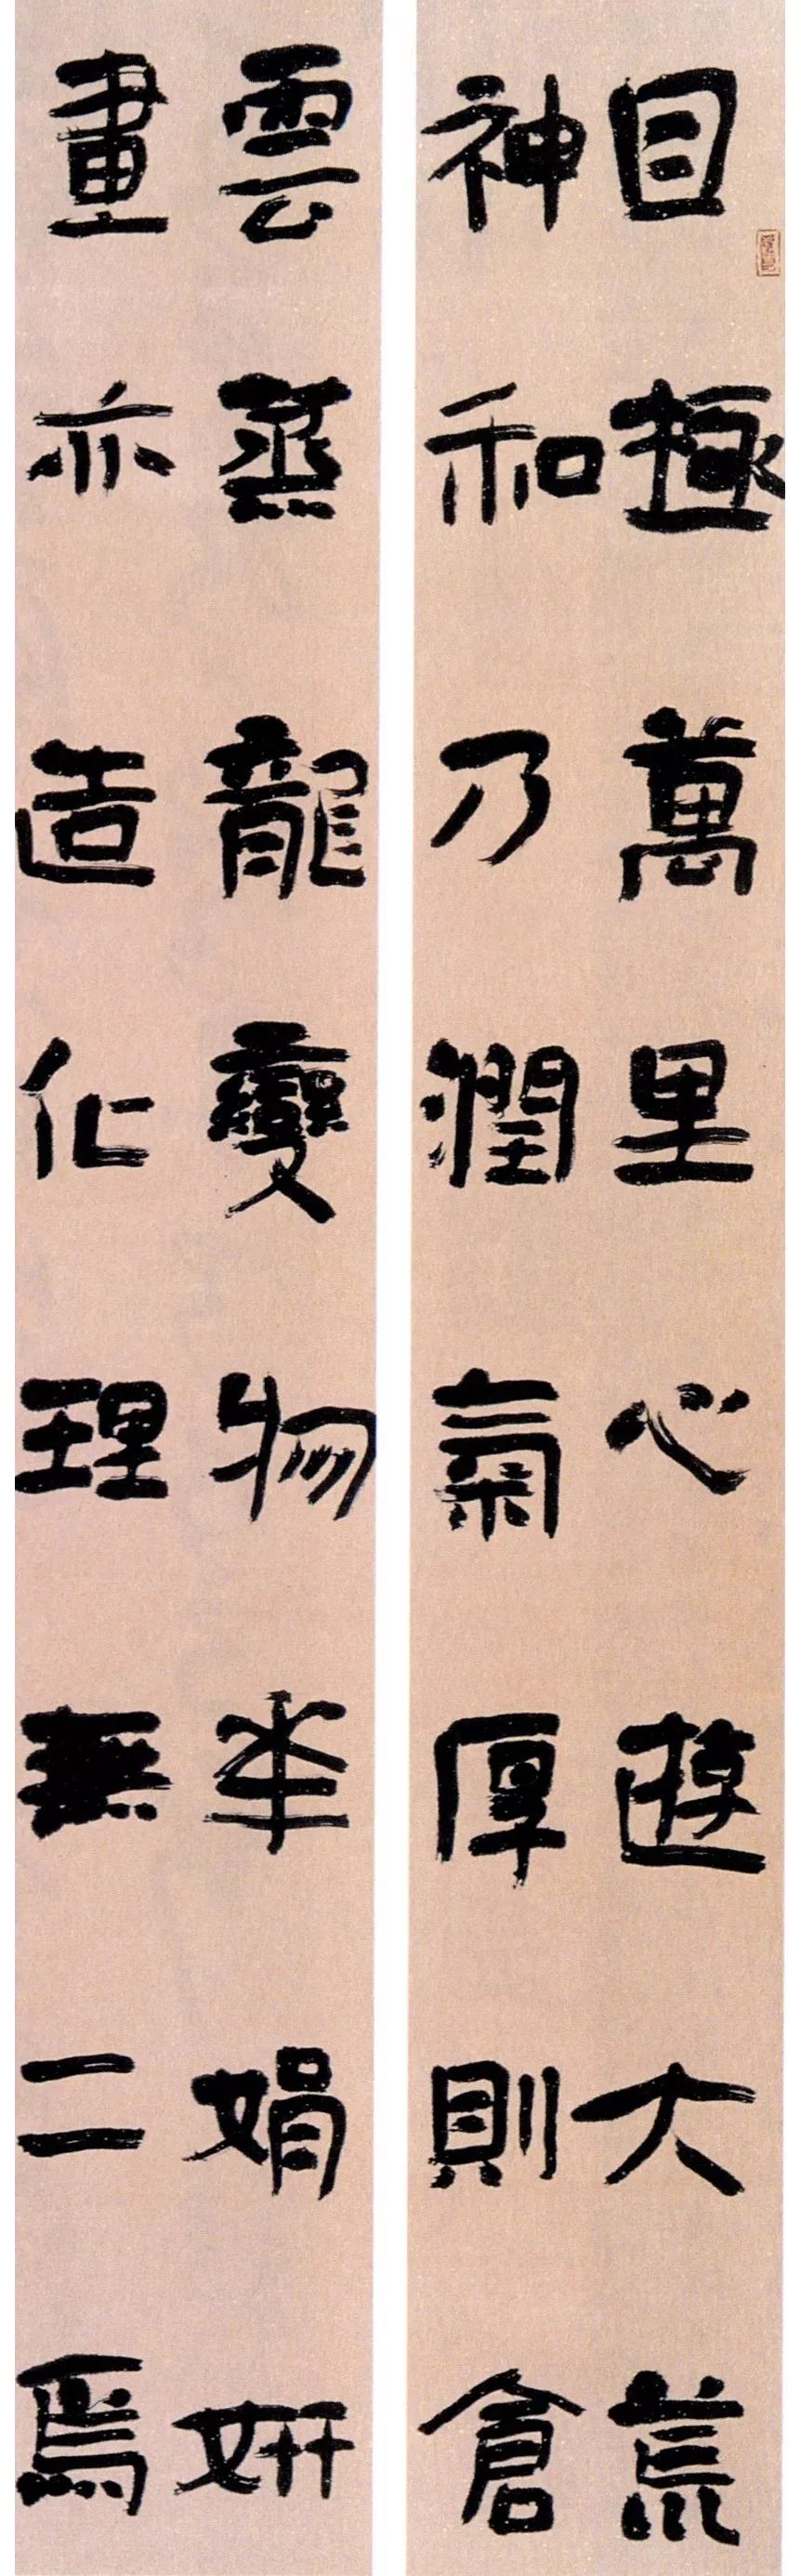 目極萬里心遊大荒
神和乃潤氣厚則倉
雲蒸龍變物華娟妍
畫亦造化理無二焉